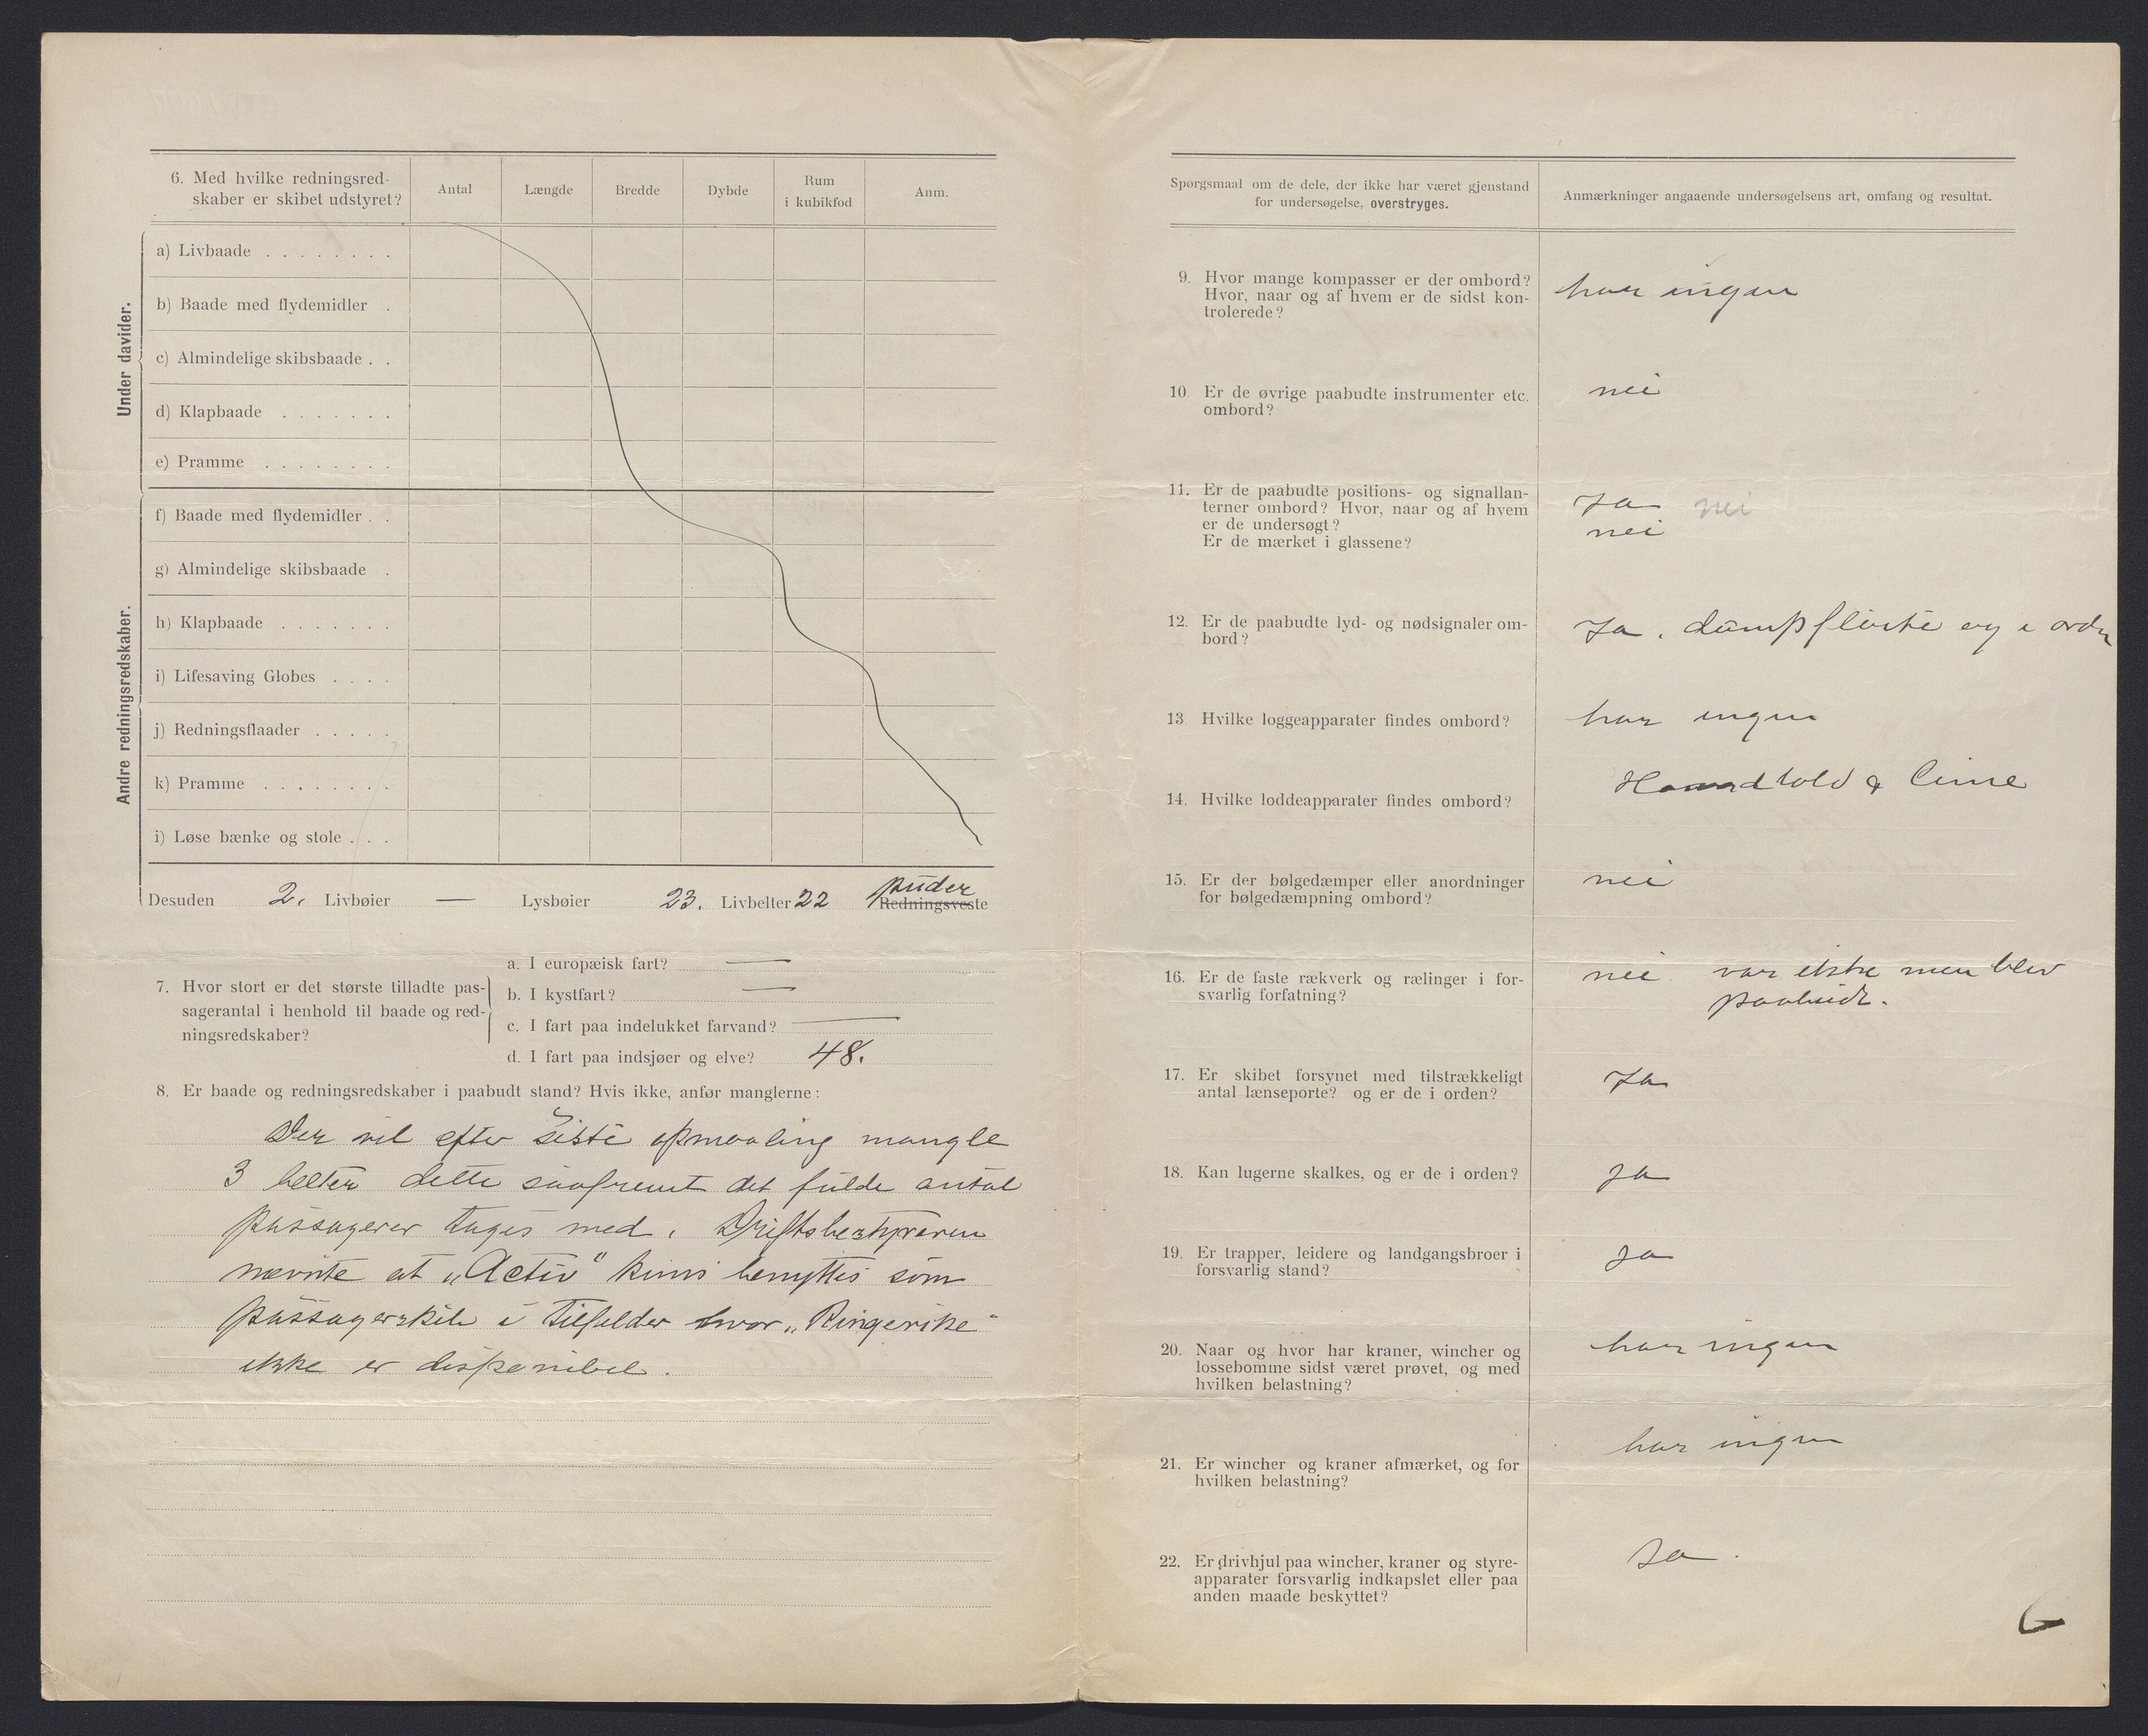 6. Med hvilke redningsred-
skaber er skibet udstyret?
Antal
Længde
Bredde
Dybde
Rum
i kubikfod
Anm.
Under davider.
a) Livbaade . . . . . . . .
b) Baade med flydemidler .
c) Almindelige skibsbaade . .
d) Klapbaade . . . . . . .
e) Pramme . . . . . . . .
Andre redningsredskaber.
f) Baade med flydemidler . .
g) Almindelige skibsbaade .
h) Klapbaade . . . . . . .
i) Lifesaving Globes . . . .
j) Redningsflaader . . . . .
k) Pramme . . . . . . . .
i) Løse bænke og stole . . .
puder
Desuden 2. Livbøier — Lysbøier 23. Livbelter 22 Redningsveste
7. Hvor stort er det største tilladte pas-
sagerantal i henhold til baade og red-
ningsredskaber?
a. I europæisk fart? —
b. I kystfart? —
c. I fart paa indelukket farvand? —
d. I fart paa indsjøer og elve? 48.
8. Er baade og redningsredskaber i paabudt stand? Hvis ikke, anfør manglerne:
Der vil efter siste opmaaling mangle
3 belter dette saafremt det fulde antal
passagerer tages med. Driftsbestyreren
nævnte at „Activ" kuns benyttes som
passagerskib i tilfælder hvor „Ringerike"
ikke er disponibel.
Spørgsmaal om de dele, der ikke har været gjenstand
for undersøgelse, overstryges.
Anmærkninger angaaende undersøgelsens art, omfang og resultat.
9. Hvor mange kompasser er der ombord?
Hvor, naar og af hvem er de sidst kon-
trolerede?
har ingen
10. Er de øvrige paabudte instrumenter etc.
ombord?
nei
11. Er de paabudte positions- og signallan-
terner ombord? Hvor, naar og af hvem
er de undersøgt?
Er de mærket i glassene?
Ja nei
nei
12. Er de paabudte lyd- og nødsignaler om-
bord?
Ja. dampfløite og i orden
13. Hvilke loggeapparater findes ombord?
har ingen
14. Hvilke loddeapparater findes ombord?
Haandlold & line
15. Er der bølgedæmper eller anordninger
for bølgedæmpning ombord?
nei
16. Er de faste rækverk og rælinger i for-
svarlig forfatning?
nei. var ikke men blev
paabudt.
17. Er skibet forsynet med tilstrækkeligt
antal lænseporte? og er de i orden?
Ja
18. Kan lugerne skalkes, og er de i orden?
ja
19. Er trapper, leidere og landgangsbroer i
forsvarlig stand?
ja
20. Naar og hvor har kraner, wincher og
lossebomme sidst været prøvet, og med
hvilken belastning?
har ingen
21. Er wincher og kraner afmærket, og for
hvilken belastning?
har ingen
22. Er drivhjul paa wincher, kraner og styre-
apparater forsvarlig indkapslet eller paa
anden maade beskyttet?
Ja.